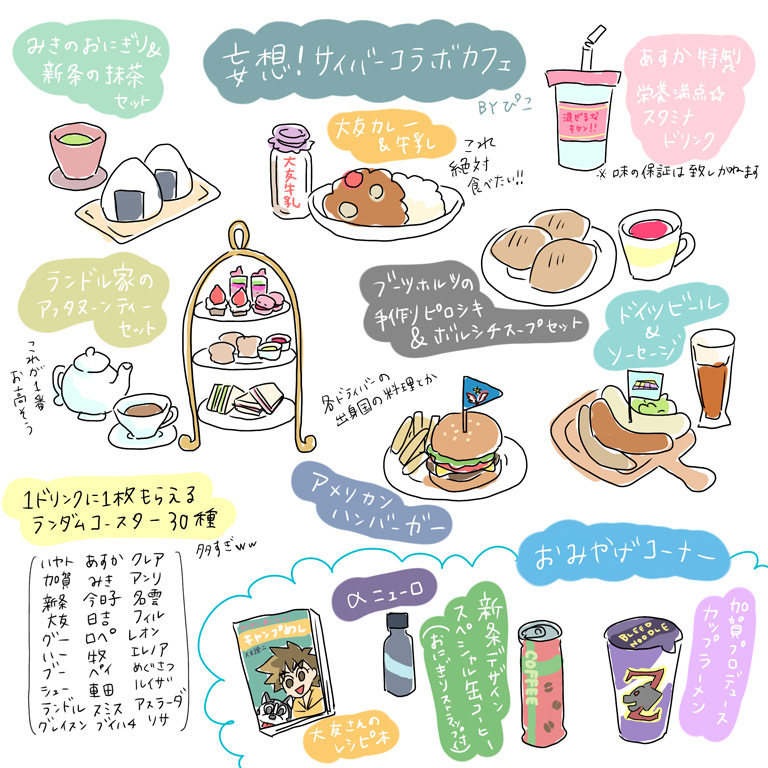 みきのおにぎり&
新条の抹茶
セット
妄想!サイバーコラボカフェ
BYぴこ
あすか特製
栄養満点☆
スタミナ
ドリンク
混ぜるな
キケン!!
※味の保証は致しかねます
大友カレー
&牛乳
大友牛乳
これ
絶対
食べたい!!
ランドル家の
アフタヌーンティー
セット
これが1番
お高そう
ブーツホルツの
手作りピロシキ
&ボルシチスープセット
ドイツビール
&
ソーセージ
各ドライバーの
出身国の料理とか
アメリカン
ハンバーガー
1ドリンクに1枚もらえる
ランダムコースター30種
多すぎww
ハヤト あすか クレア
加賀 みき アンリ
新条 今日子 名雲
大友 日吉 フィル
グー ロペ レオン
ハー 牧 エレノア
ブー ペイ めぐさつ
シュー 車田 ルイザ
ランドル スミス アスラーダ
グレイスン ブイハチ リサ
おみやげコーナー
キャンプめし
大友さんの
レシピ本
αニューロ
新条デザイン
スペシャル缶コーヒー
(おにぎりストラップ付)
COFFEE
BLEED
NOODLE
Z
加賀プロデュース
カップラーメン